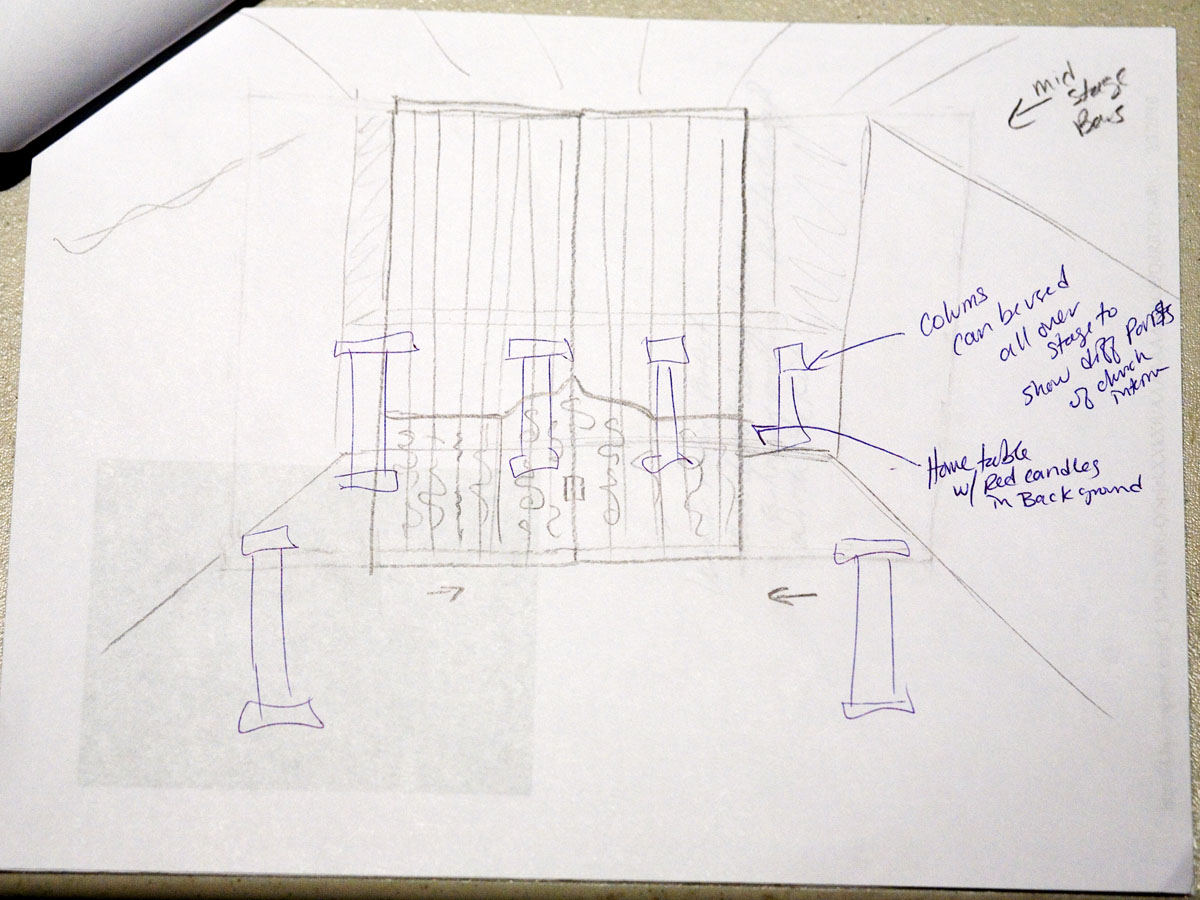 mid
stage
Bars
Colums
can be used
all over
stage to
show diff Parts
of church
interior
Have table
w/ Red candles
in Background